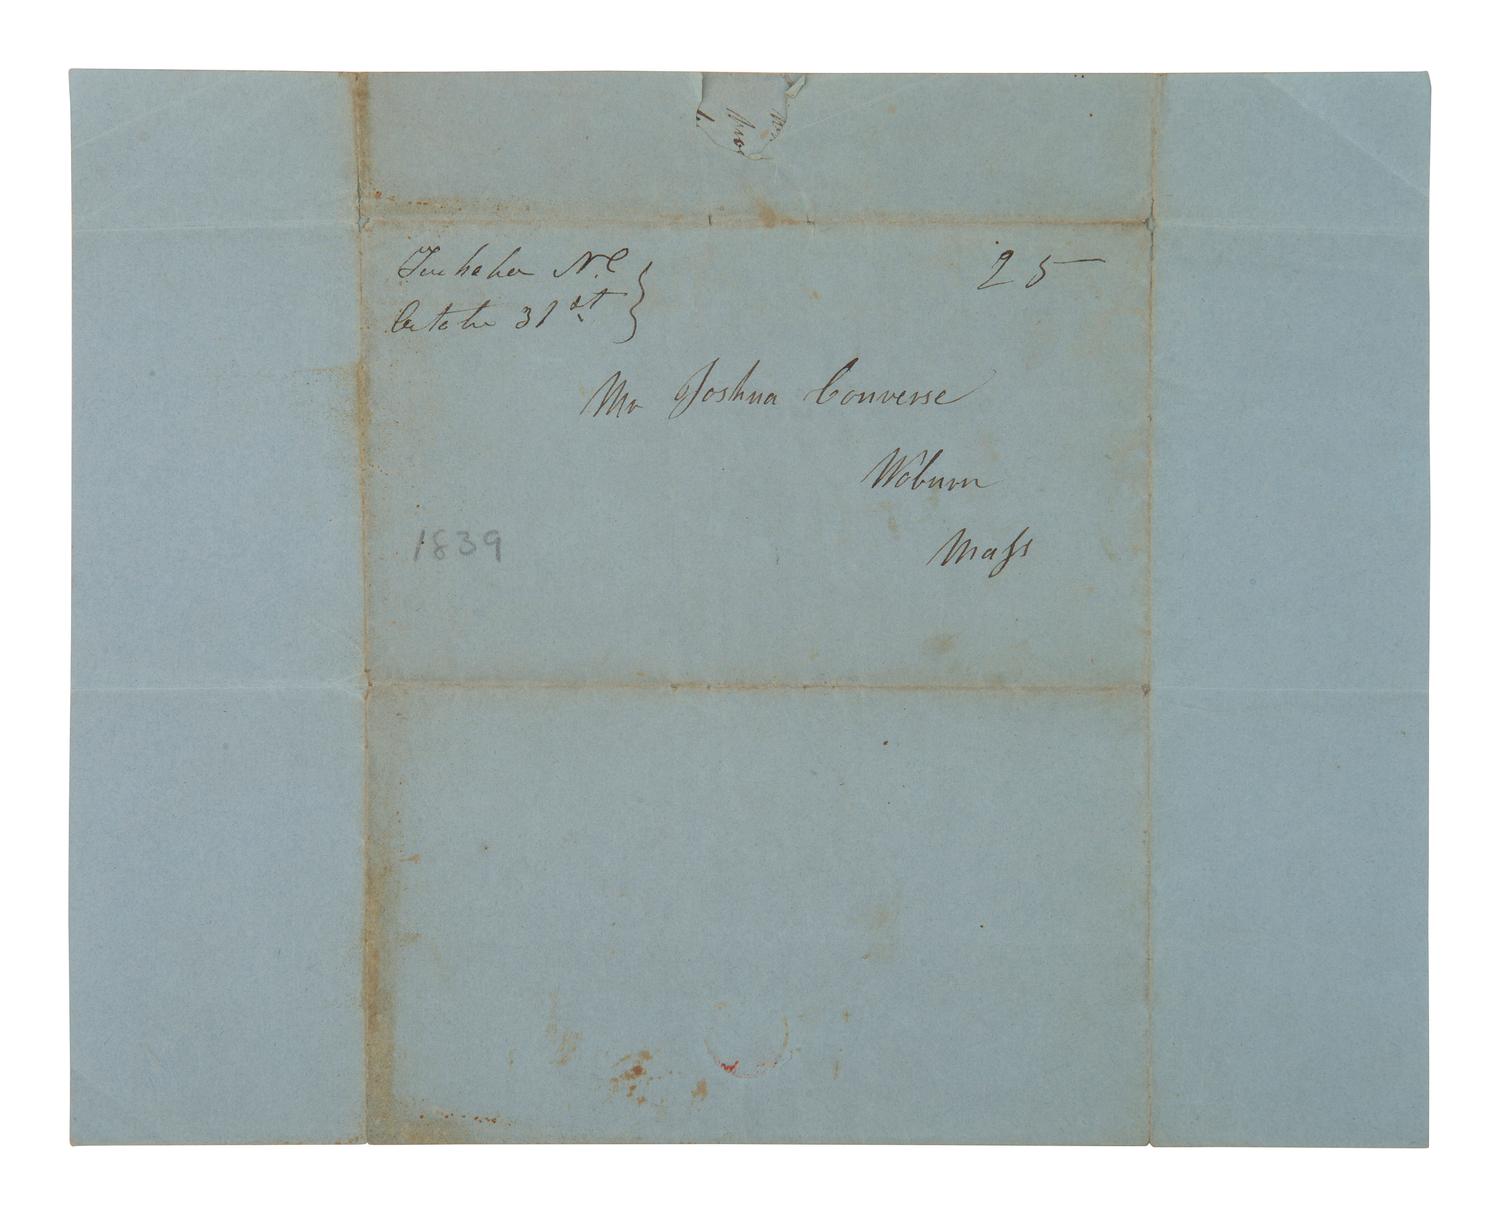 N.C 25
October 31st
Mr Joshua Converse
Woburn
Mass
1839